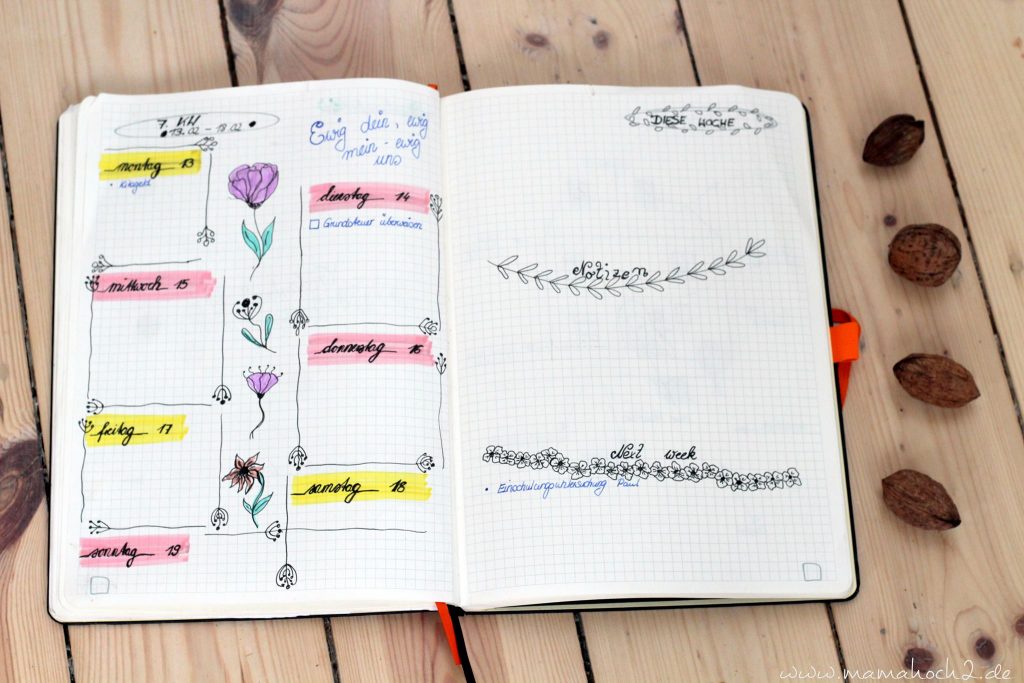 7. KW
• 13.02 - 19.02 •
Ewig dein, ewig
mein - ewig
uns
montag 13
• Kitageld
dienstag 14
Grundsteuer überweisen
mittwoch 15
donnerstag 16
freitag 17
samstag 18
sonntag 19
DIESE WOCHE
Notizen
Next week
• Einschulungsuntersuchung Paul
www.mamahoch2.de